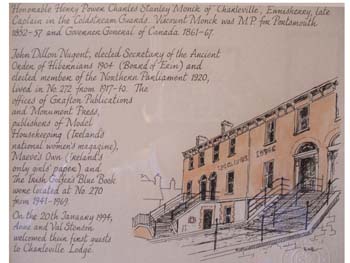 Honorable Henry Power Charles Stanley Monck of Charleville, Enniskerry, late
Captain in the Coldstream Guards. Viscount Monck was M.P. for Portsmouth
1852-57 and Governor General of Canada 1861-67.
John Dillon Nugent, elected Secretary of the Ancient
Order of Hibernians 1904 (Board of Erin) and
elected member of the Northern Parliament 1920,
lived in No 272 from 1917-40. The
offices of Grafton Publications
and Monument Press,
publishers of Model
Housekeeping (Ireland's
national women's magazine),
Maeve's Own (Ireland's
only girls' paper) and
The Irish Golfer's Blue Book
were located at No 270
from 1941-1969.
On the 20th January 1994,
Anne and Val Stenson
welcomed their first guests
to Charleville Lodge.